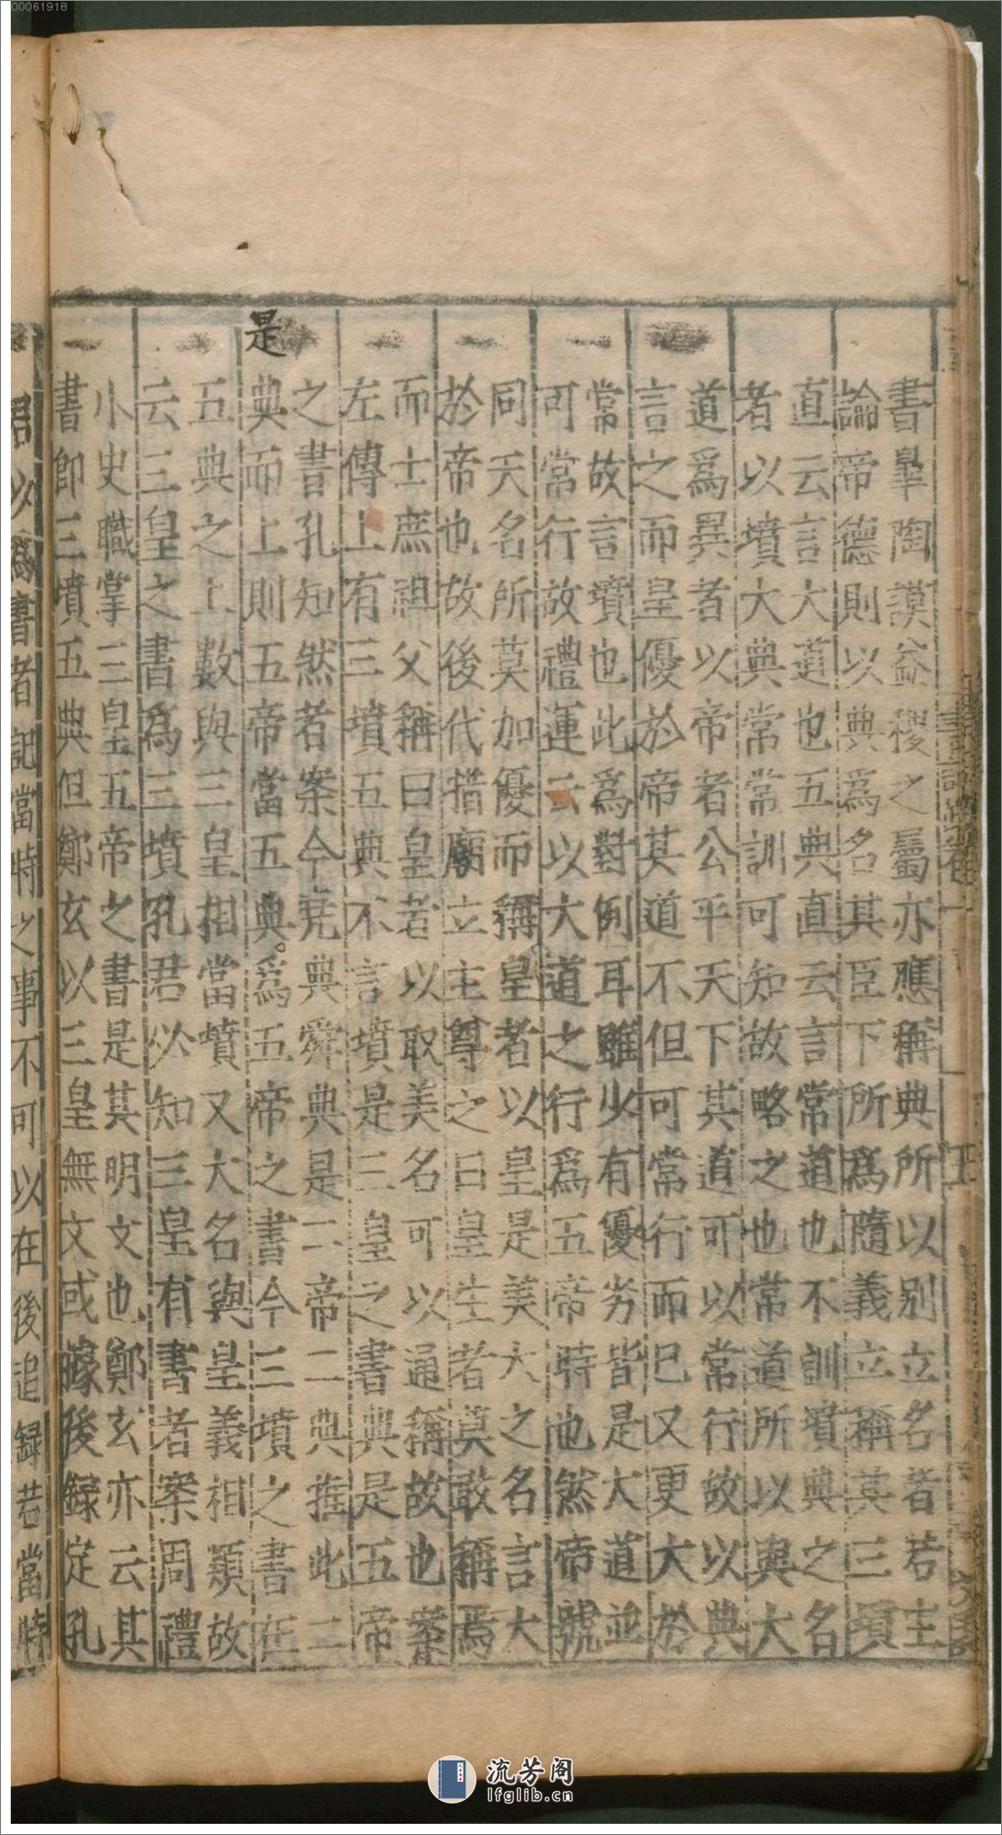 00061918
書臯陶謨益稷之屬亦應稱典所以別立名者若主
論帝德則以典爲名其臣下所爲隨義立稱其三墳
直云言大道也五典直云言常道也不訓墳典之名
者以墳大典常常訓可知故略之也常道所以與大
道爲異者以帝者公平天下其道可以常行故以典
言之而皇優於帝其道不但可常行而已又更大於
常故言墳也此爲對例耳雖少有優劣皆是大道並
可常行故禮運云以大道之行爲五帝時也然帝號
同天名所莫加優而稱皇者以皇是美大之名言大
於帝也故後代措廟立主尊之曰皇生者莫敢稱焉
而士庶祖父稱曰皇者以取美名可以通稱故也案
左傳上有三墳五典不言墳是三皇之書典是五帝
之書孔知然者案今堯典舜典是二帝二典推此二
典而上則五帝當五典是爲五帝之書今三墳之書在
五典之上數與三皇相當墳又大名與皇義相類故
云三皇之書爲三墳孔君必知三皇有書者案周禮
小史職掌三皇五帝之書是其明文也鄭玄亦云其
書即三墳五典但鄭玄以三皇無文或據後錄定孔
君以爲書者記當時之事不可以在後追録若當時
流芳阁
lfglib.cn